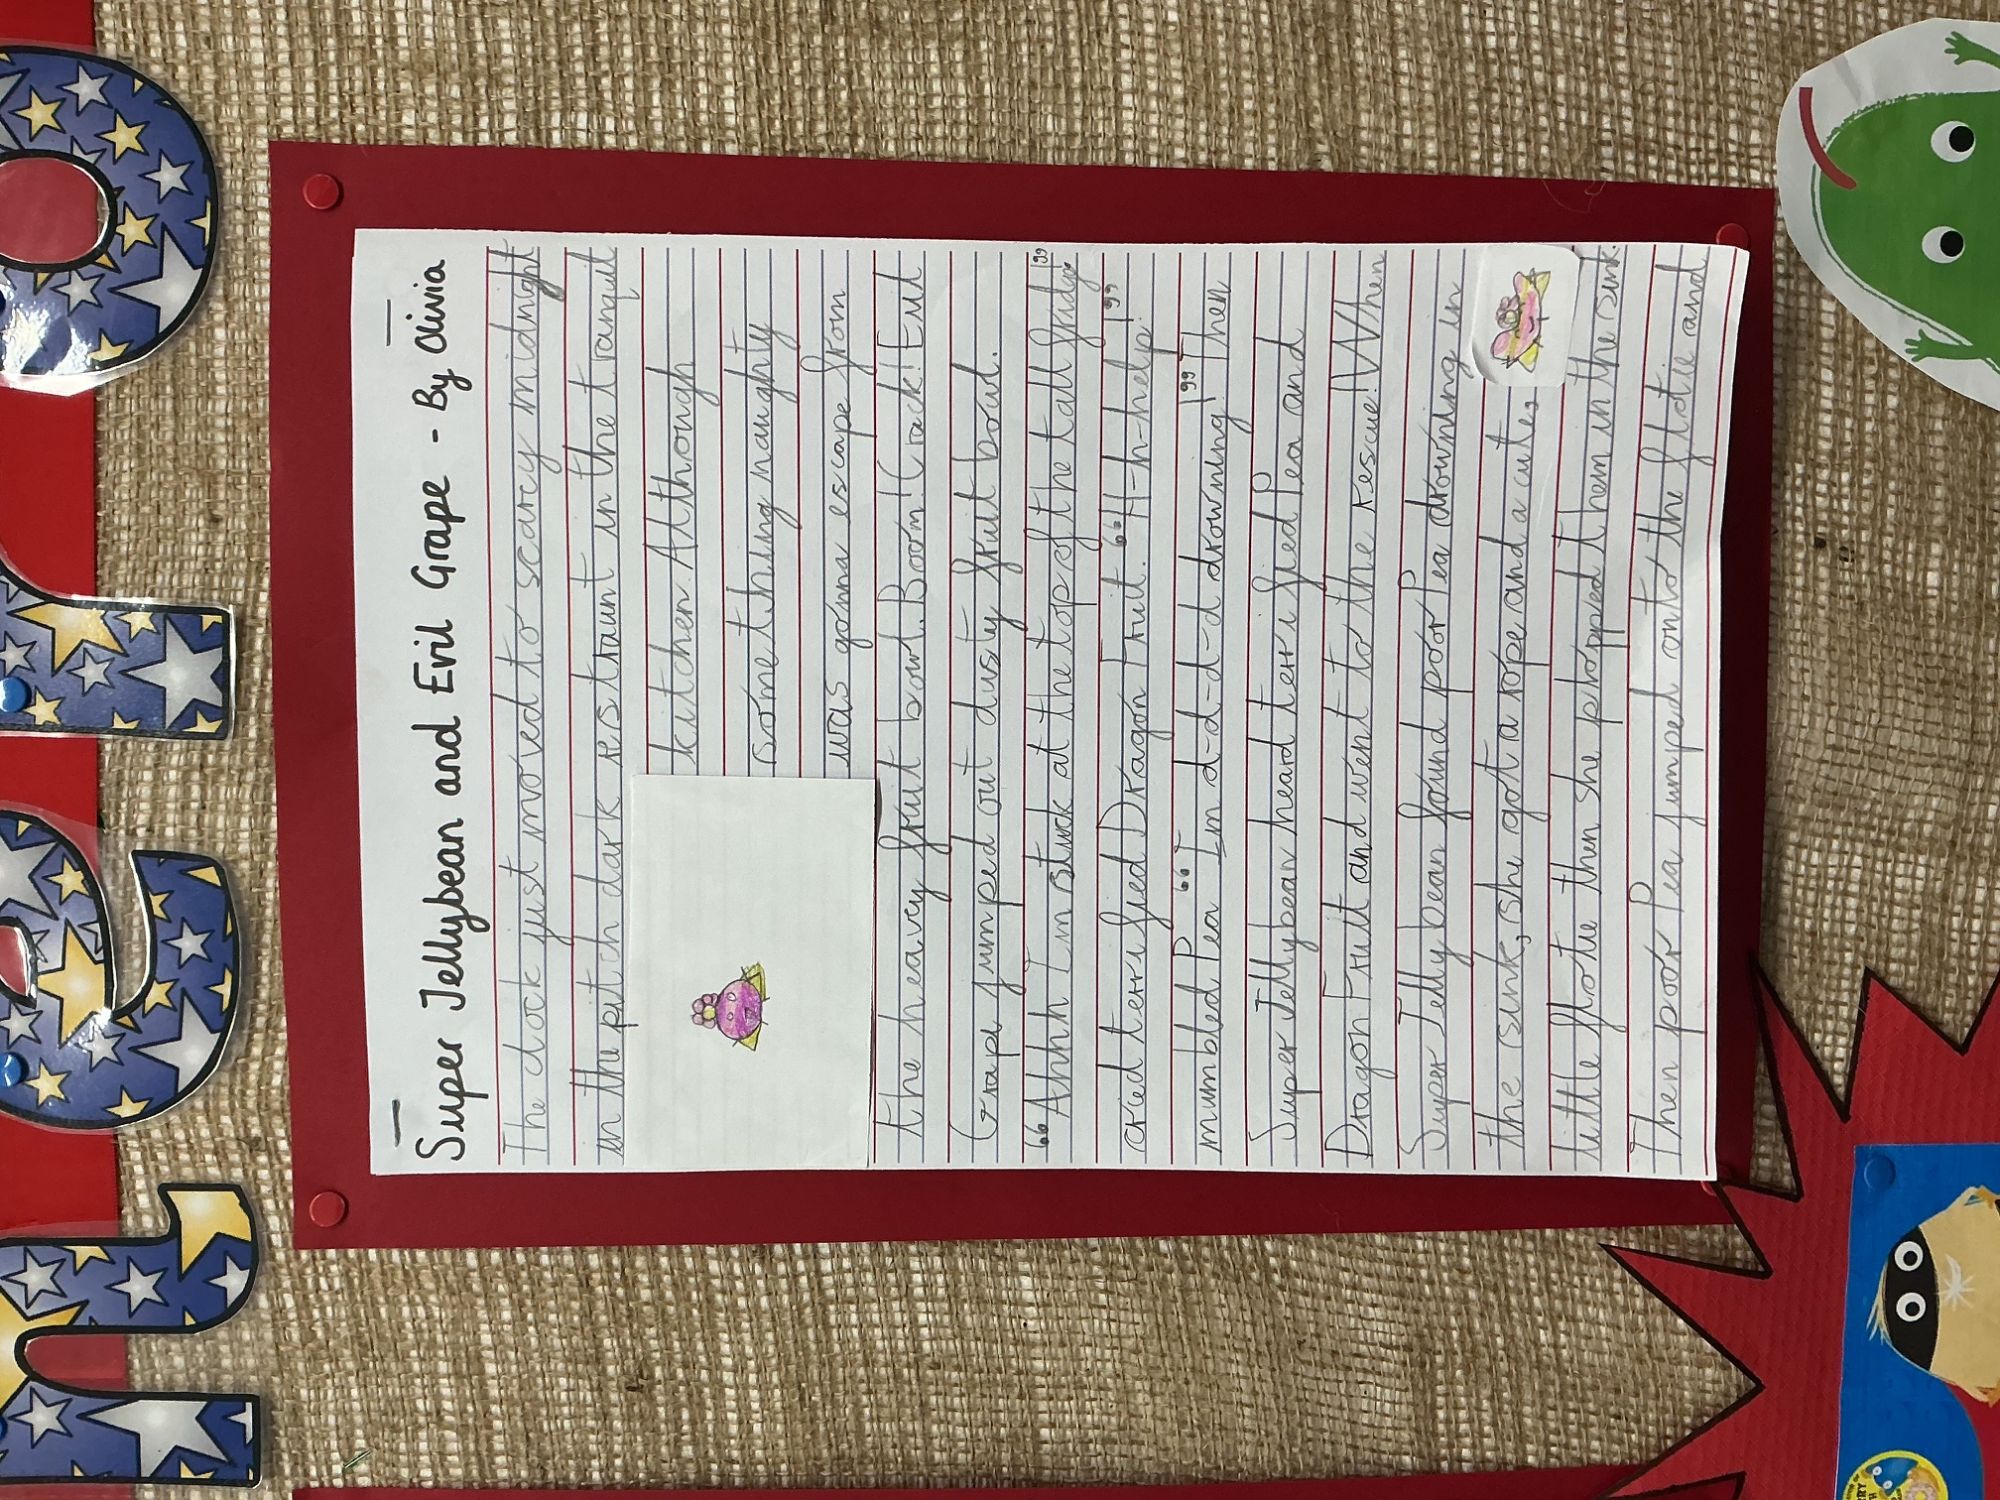 Super Jellybean and Evil Grape - By Olivia
The clock just moved to scarcy midnight
in the pitch dark restraunt in the tranquil
kitchen. Although
something naughty
was gonna escape from
the heavey fruit bowl. Boom! Crack! Evil
Grape jumped out dusty fruit bowl.
“Ahhh I'm stuck at the top of the tall fridge!”
cried terrified Dragon Fruit. “H-h-help!”
mumbled Pea “I'm d-d-d-d drowning!” Then
Super Jellybean heard terrified Pea and
Dragon Fruit and went to the rescue! When
Super Jellybean found poor Pea drowning in
the sink, she got a rope and a cute,
little flotie then she plopped them in the sink.
Then poor Pea jumped onto the flotie and